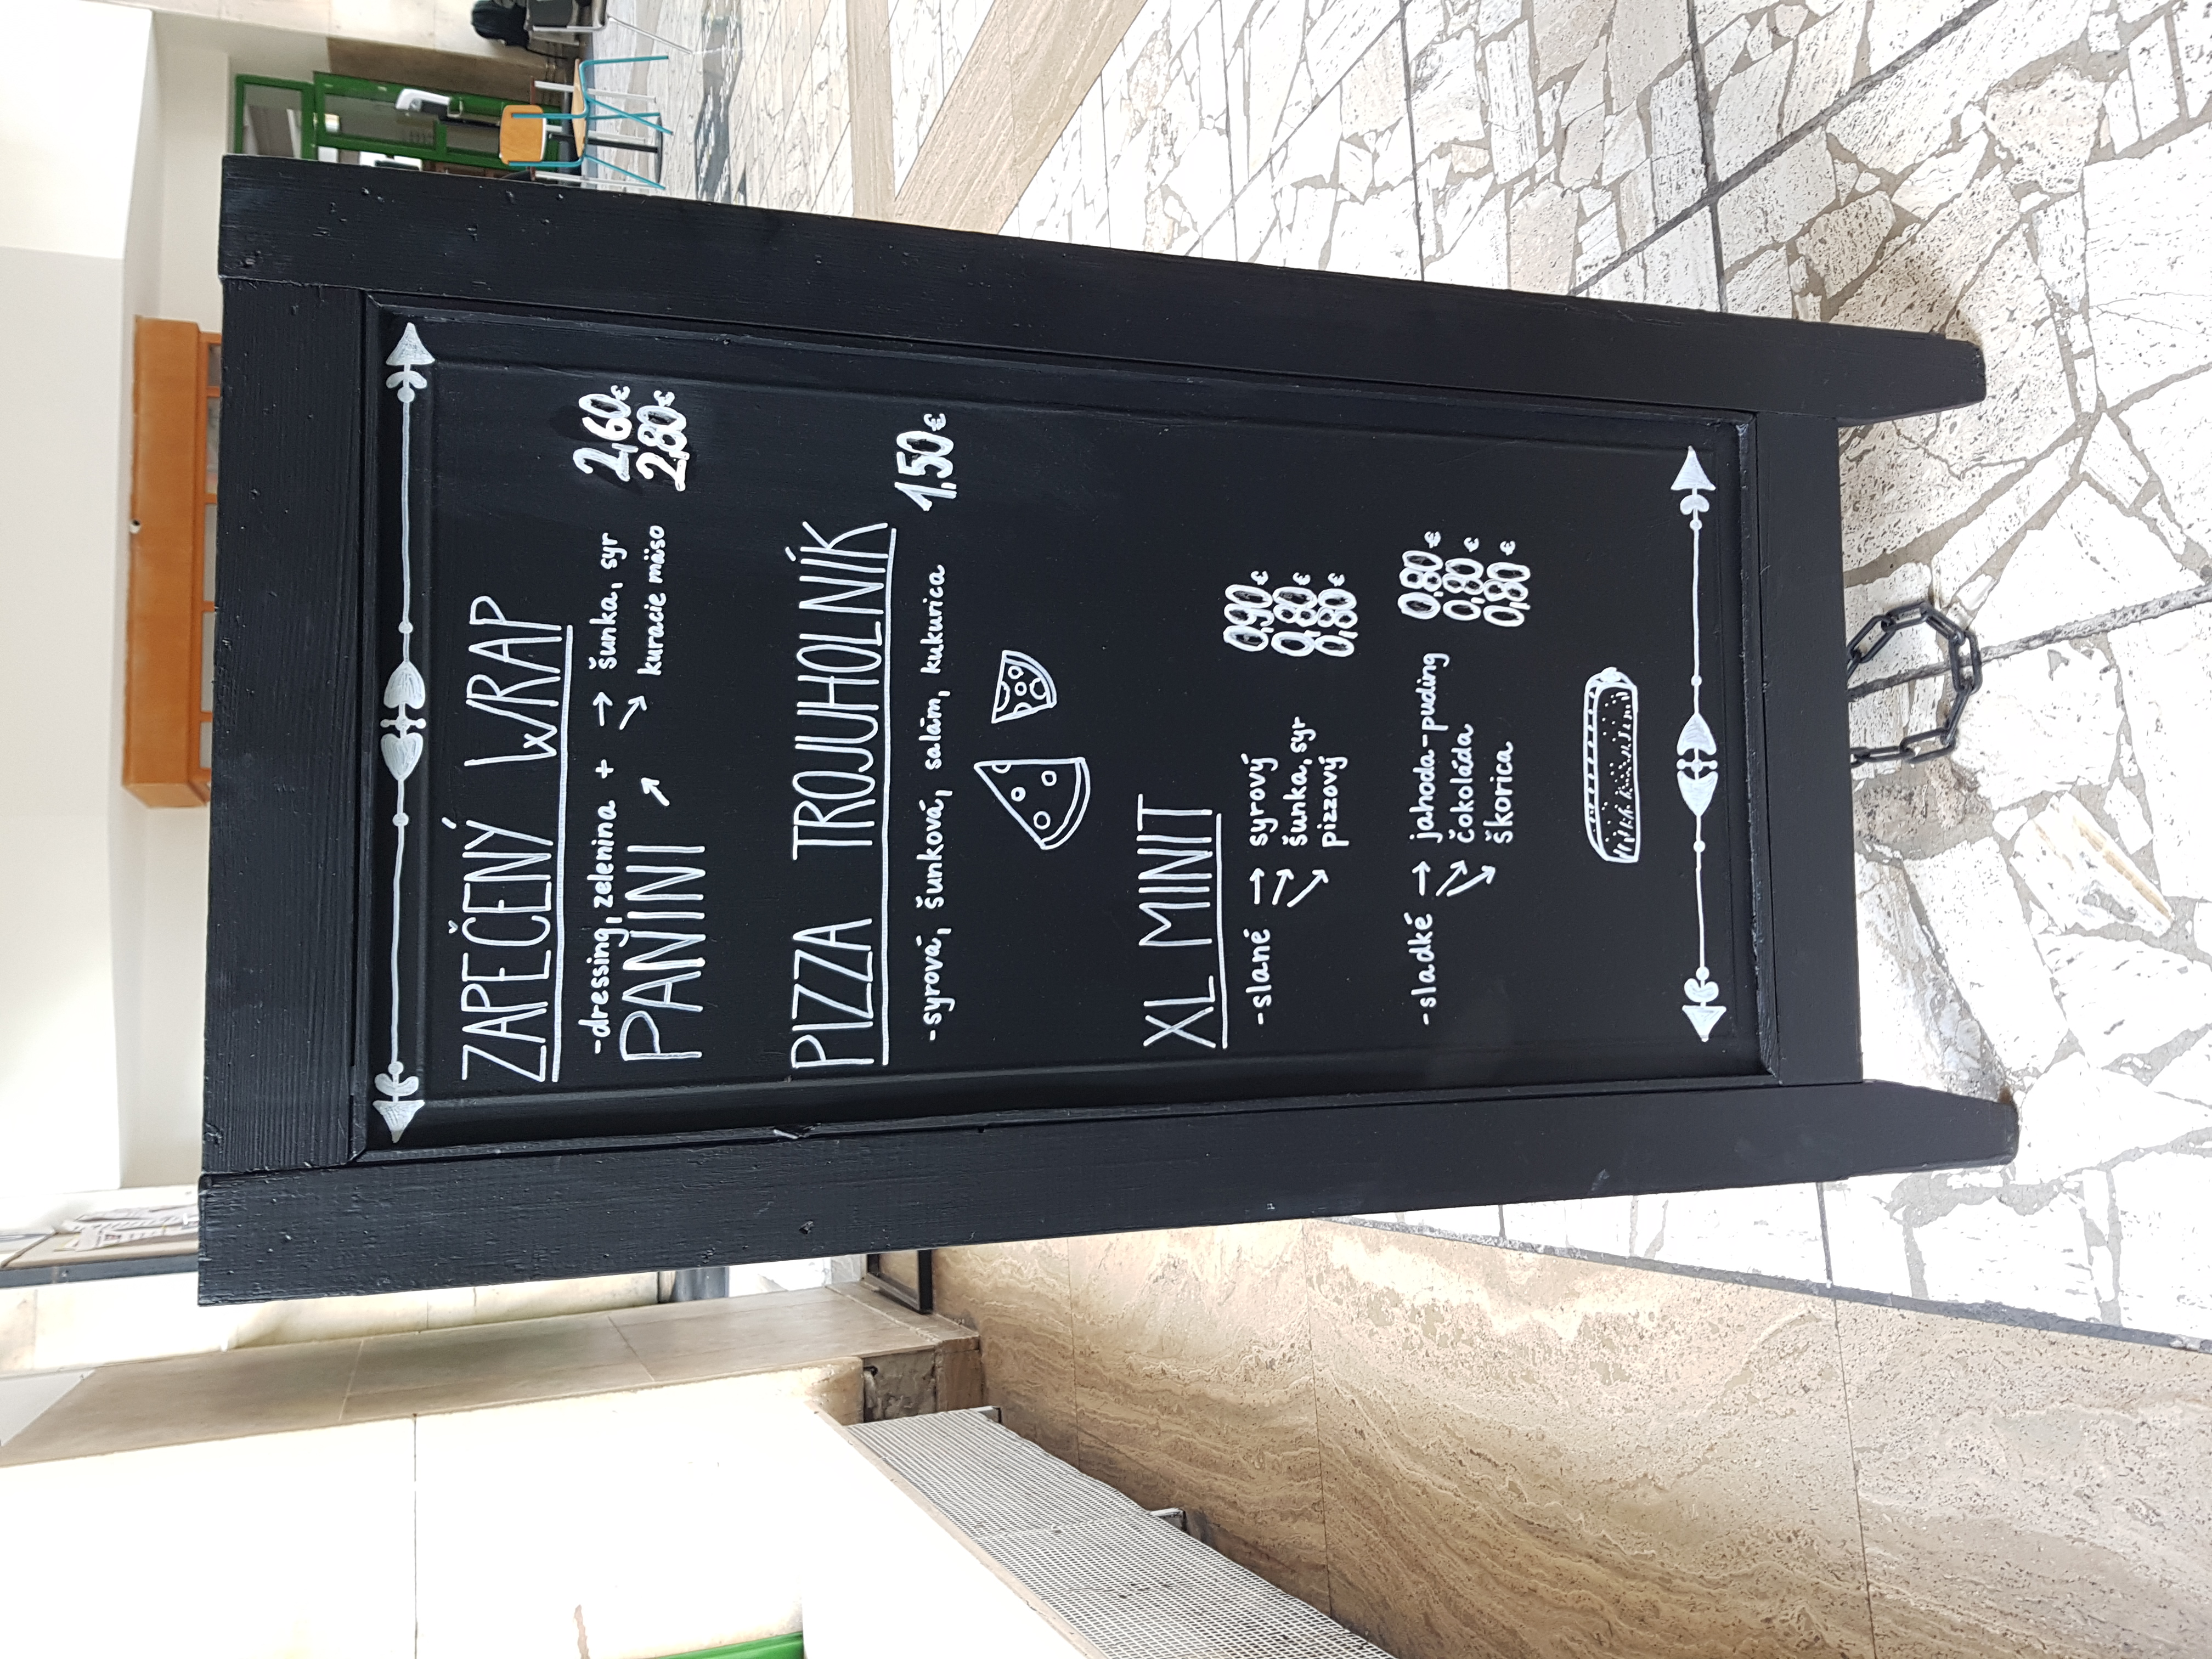 ZAPEČENÝ WRAP
-dressing, zelenina + → šunka, syr 2,60€
PANINI ↗ ↘ kuracie mäso 2,80€
PIZZA TROJUHOLNÍK
-syrová, šunková, salám, kukurica 1,50€
XL MINIT
-slané → syrový 0,90€
↘ šunka, syr 0,80€
↘ pizzový 0,80€
-sladké → jahoda-puding 0,80€
↘ čokoláda 0,80€
↘ škorica 0,80€